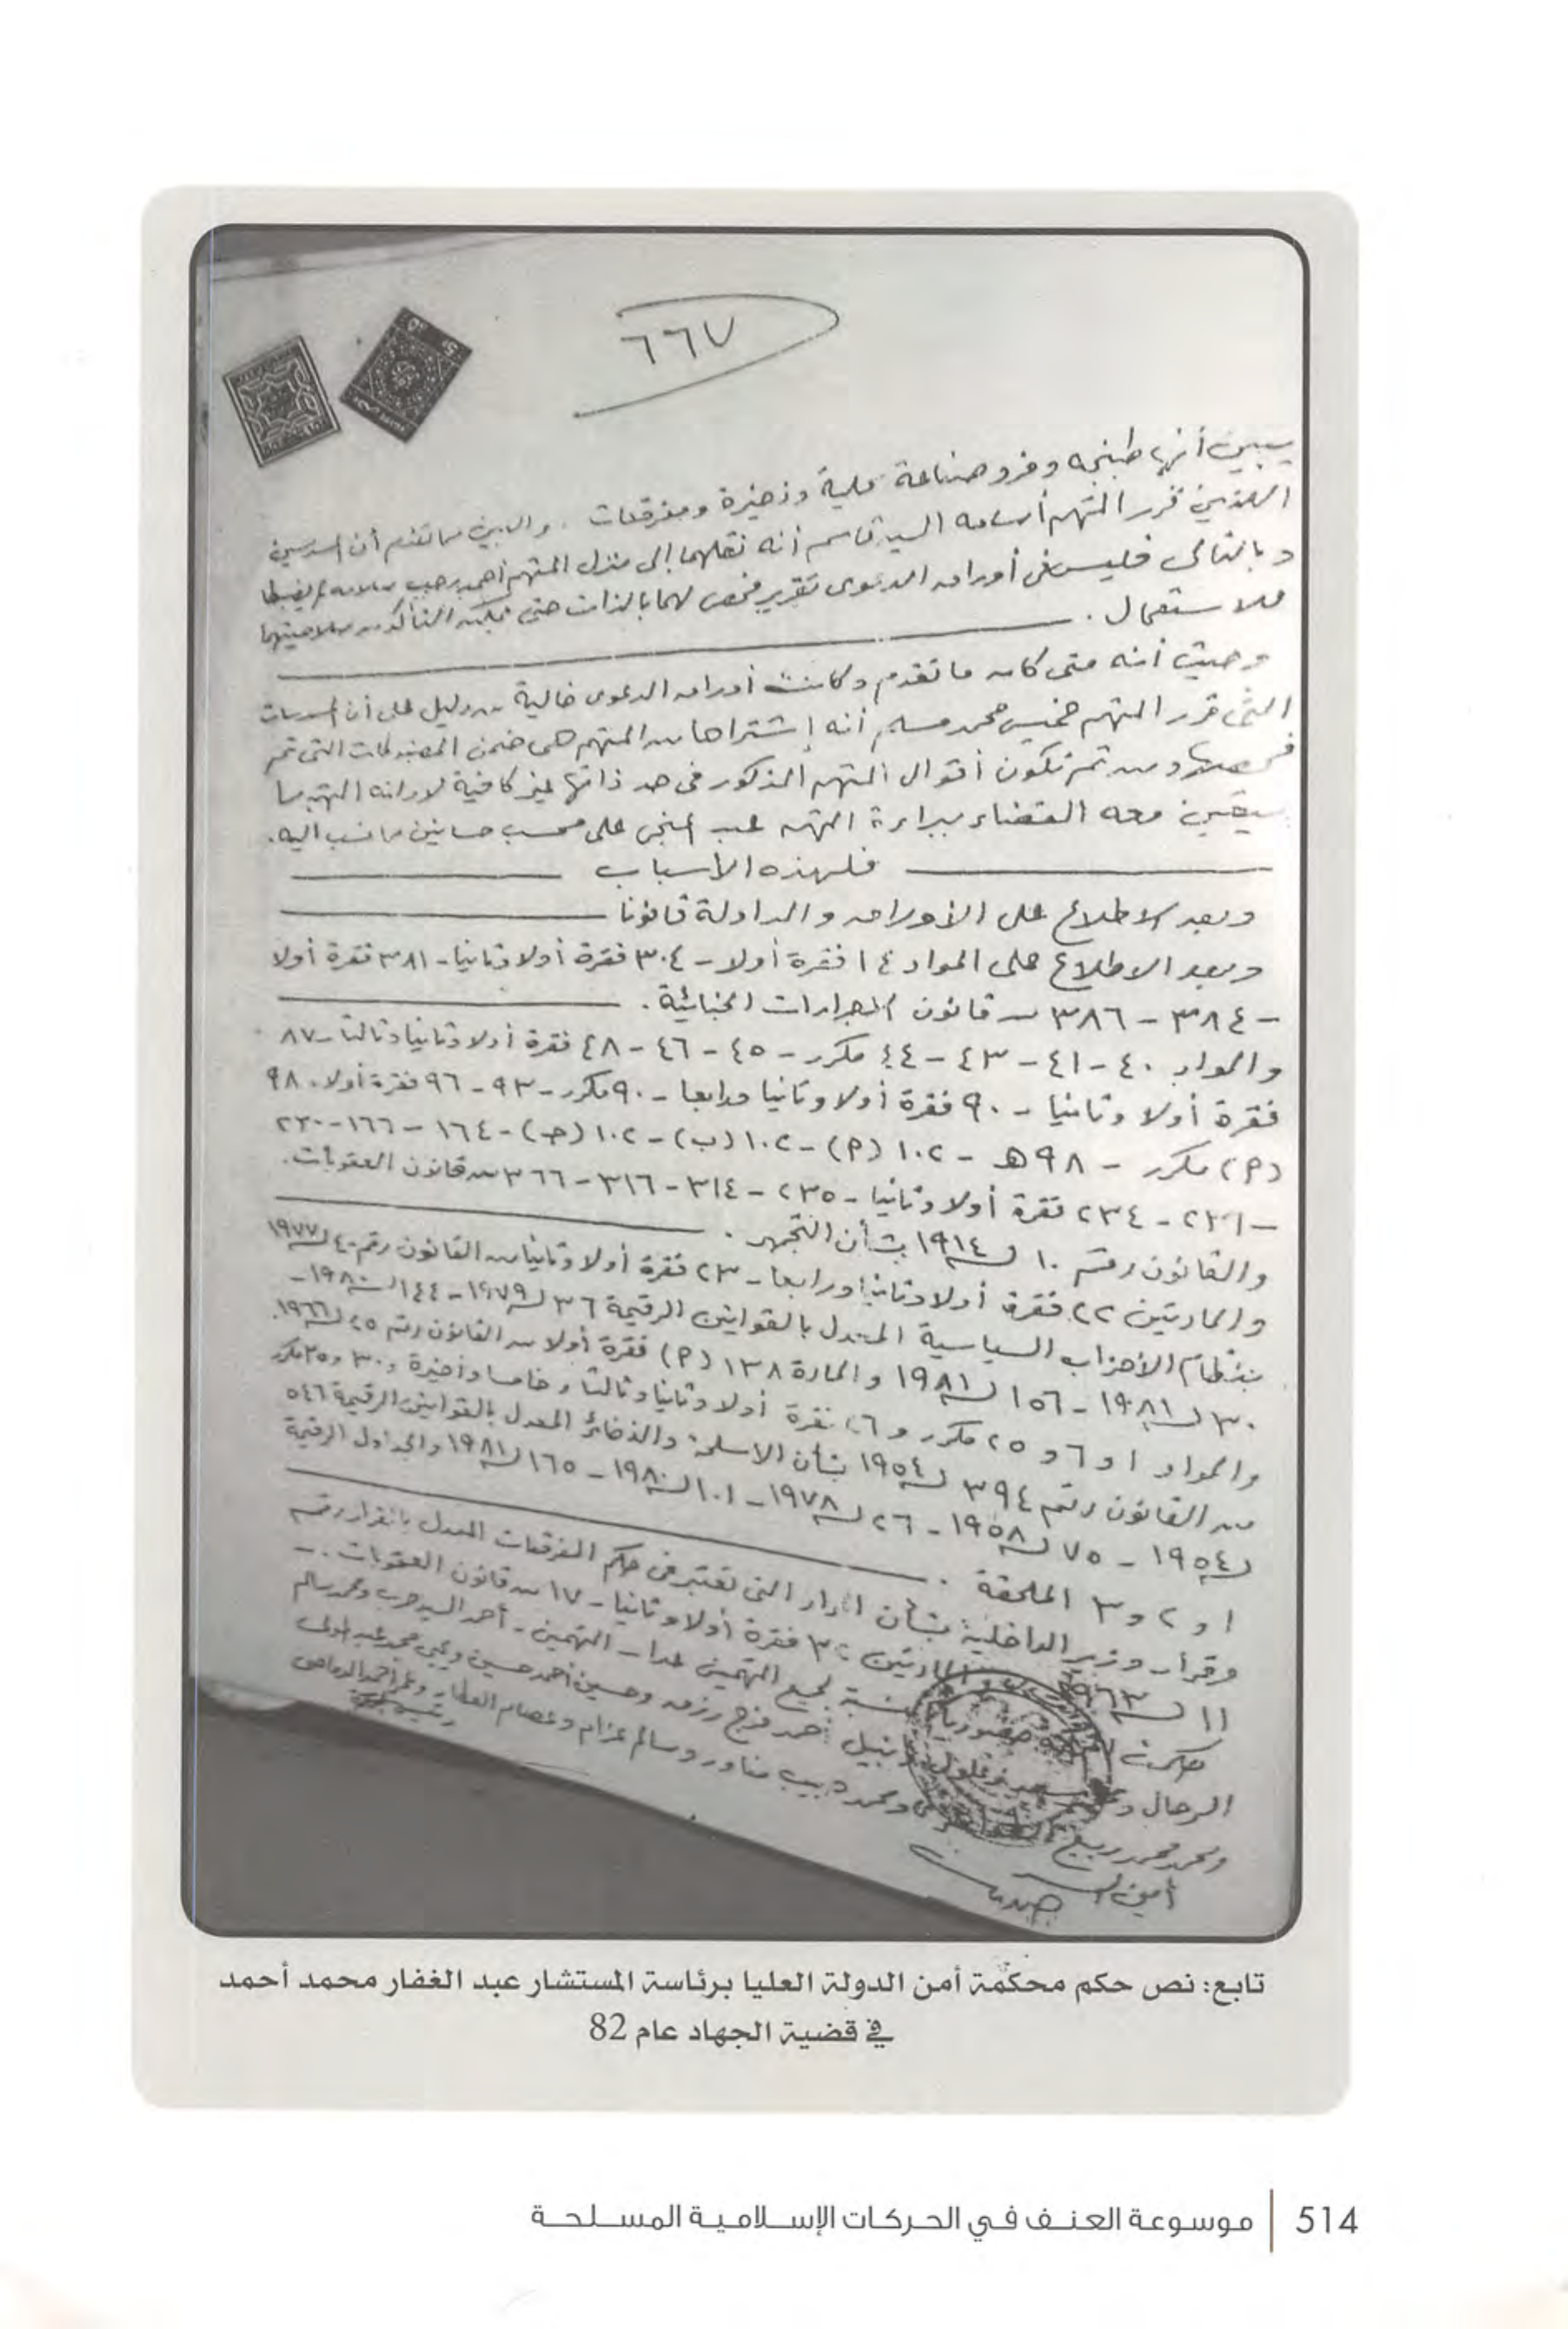 ٦٦٧
يبين أنها طبنجه وفرد صناعة محلية وذخيرة ومفرقعات . والبين مما تقدم أن المسدسين
اللذين قرر المتهم أسامه السيد قاسم أنه نقلهما إلى منزل المتهم أحمد رجب سلامه لم يضبطا
وبالتالى فليس فى أوراق الدعوى تقرير فحص لهما بالذات حتى يمكن التأكد من صلاحيتهما
للاستعمال .
وحيث أنه متى كان ما تقدم وكانت أوراق الدعوى خالية من دليل على أن المسدسات
التى قرر المتهم خميس محمد مسلم أنه إشتراها من المتهم هى ضمن المضبوطات التى تم
فحصها ومن ثم تكون أقوال المتهم المذكور فى حد ذاتها غير كافية لادانه المتهم مما
يتعين معه القضاء ببراءة المتهم على محسب حسانين مما نسب اليه.
فلهذه الأسباب
وبعد الاطلاع على الأوراق والمداولة قانونا
وبعد الاطلاع على المواد ١٤ فقرة أولا - ٣٠٤ فقرة أولا وثانيا - ٣٨١ فقرة أولا
- ٣٨٤ - ٣٨٦ من قانون الاجراءات الجنائية .
والمواد ٤٠ - ٤١ - ٤٣ - ٤٤ مكرر - ٤٥ - ٤٦ - ٤٨ فقرة أولا وثانيا وثالثا - ٨٧
فقرة أولا وثانيا - ٩٠ فقرة أولا وثانيا ورابعا - ٩٠ مكرر - ٩٣ - ٩٦ فقرة أولا - ٩٨
(أ) مكرر - ٩٨ هـ - ١٠٢ (أ) - ١٠٢ (ب) - ١٠٢ (جـ) - ١٦٤ - ١٦٦ - ٢٣٠
- ٢٣١ - ٢٣٤ فقرة أولا وثانيا - ٢٣٥ - ٣١٤ - ٣١٦ - ٣٦٦ من قانون العقوبات.
والقانون رقم ١٠ لسنة ١٩١٤ بشأن التجمهر .
والمادتين ٢٢ فقرة أولا وثانيا ورابعا - ٢٣ فقرة أولا وثانيا من القانون رقم ٤٠ لسنة ١٩٧٧
بنظام الأحزاب السياسية المعدل بالقوانين الرقيمة ٣٦ لسنة ١٩٧٩ - ١٤٤ لسنة ١٩٨٠ -
٣٠ لسنة ١٩٨١ - ١٥٦ لسنة ١٩٨١ والمادة ١٣٨ (أ) فقرة أولا من القانون رقم ٢٥ لسنة ١٩٦٦.
والمواد ١ و ٦ و ٢٥ مكرر و ٢٦ فقرة أولا وثانيا وثالثا وخامسا وأخيرة و ٣٠ و ٣٥ مكرر
من القانون رقم ٣٩٤ لسنة ١٩٥٤ بشأن الاسلحة والذخائر المعدل بالقوانين الرقيمة ٥٤٦
لسنة ١٩٥٤ - ٧٥ لسنة ١٩٥٨ - ٢٦ لسنة ١٩٧٨ - ١٠١ لسنة ١٩٨٠ - ١٦٥ لسنة ١٩٨١ والجداول الرقيمة
١ و ٢ و ٣ الملحقة .
وقرار وزير الداخلية بشأن المواد التى تعتبر فى حكم المفرقعات المعدل بالقرار رقم
١١ لسنة ١٩٦٣ والمادتين فقرة أولا وثانيا - ١٧ من قانون العقوبات . -
حكمت لجميع المتهمين عدا - المتهمين - أحمد السيد رجب ومحمد سالم
الرحال ونبيل أحمد فرج رزق وحسين أحمد حسين ويحيى محمد
ومحمد محمد ربيع ومحمد مناور وسالم عزام وعصام العطار
أمين السر
تابع: نص حكم محكمة أمن الدولة العليا برئاسة المستشار عبد الغفار محمد أحمد
في قضية الجهاد عام 82
514 | موسوعة العنف في الحركات الإسلامية المسلحة